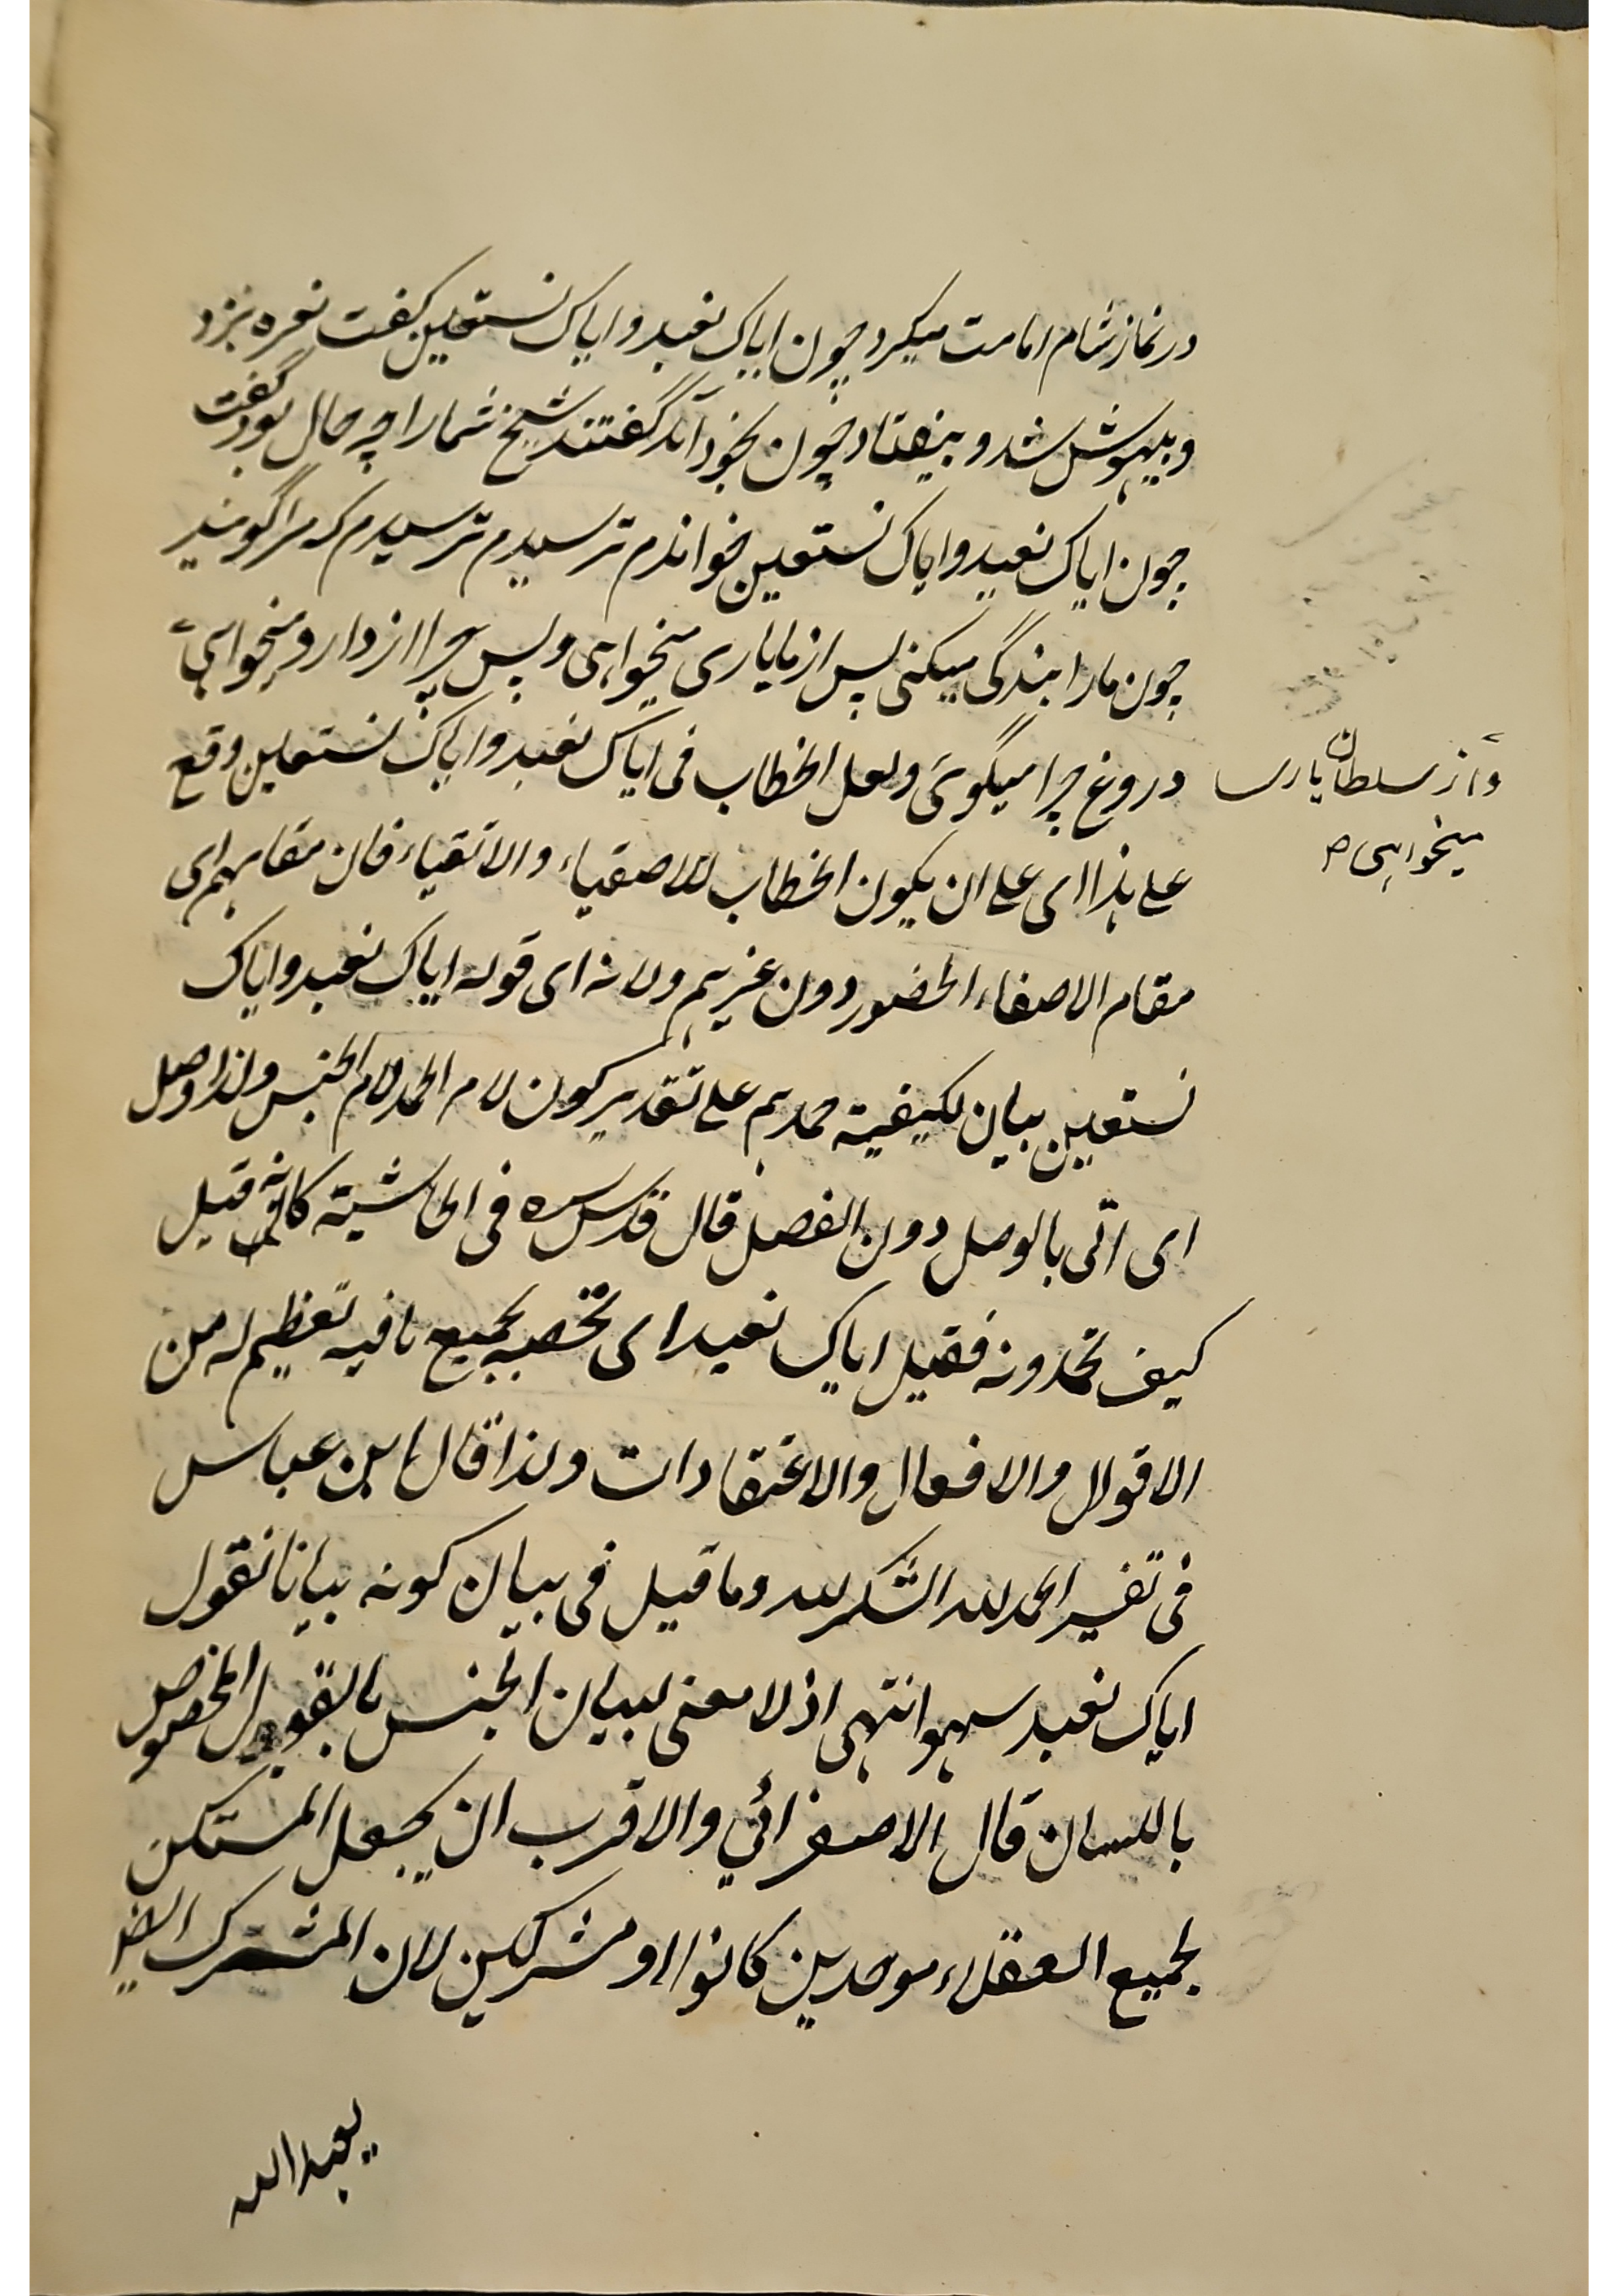 در نماز شام امامت میکرد چون ایاک نعبد وایاک نستعین کفت نعره بزد
و بیهوش شد و بیفتاد چون بخود آمد گفتند شیخ شما را چه حال بود گفت
چون ایاک نعبد وایاک نستعین خواندم ترسیدم ترسیدم که مرا گویند
چون ما را بندگی میکنی پس از ما یاری میخواهی و پس چرا از دارو میخواهی
دروغ چرا میگوئی ولعل الخطاب فی ایاک نعبد وایاک نستعین وقع
واز سلطان یاری
میخواهی ص
علی هذا ای علی ان یکون الخطاب للاصفیاء والاتقیاء فان مقامهم ای
مقام الاصفاء الحضور دون غیرهم ولانه ای قوله ایاک نعبد وایاک
نستعین بیان لکیفیة حمدهم علی تقدیر کون لام الحمد لام الجنس ولذا وصل
ای اتی بالوصل دون الفصل قال قدس سره فی الحاشیة کانه قیل
کیف تحمدونه فقیل ایاک نعبد ای نخصه بجمیع ما فیه تعظیم له من
الاقوال والافعال والاعتقادات ولذا قال ابن عباس
فی تفسیر الحمد لله الشکر لله وما قیل فی بیان کونه بیانا نقول
ایاک نعبد سهو انتهی اذ لا معنی لبیان الجنس بالقول المخصوص
باللسان قال الاصفرائي والاقرب ان یجعل المستکن
لجمیع العقلاء موحدین کانوا او مشرکین لان المشرک ایضا
یعبد الله